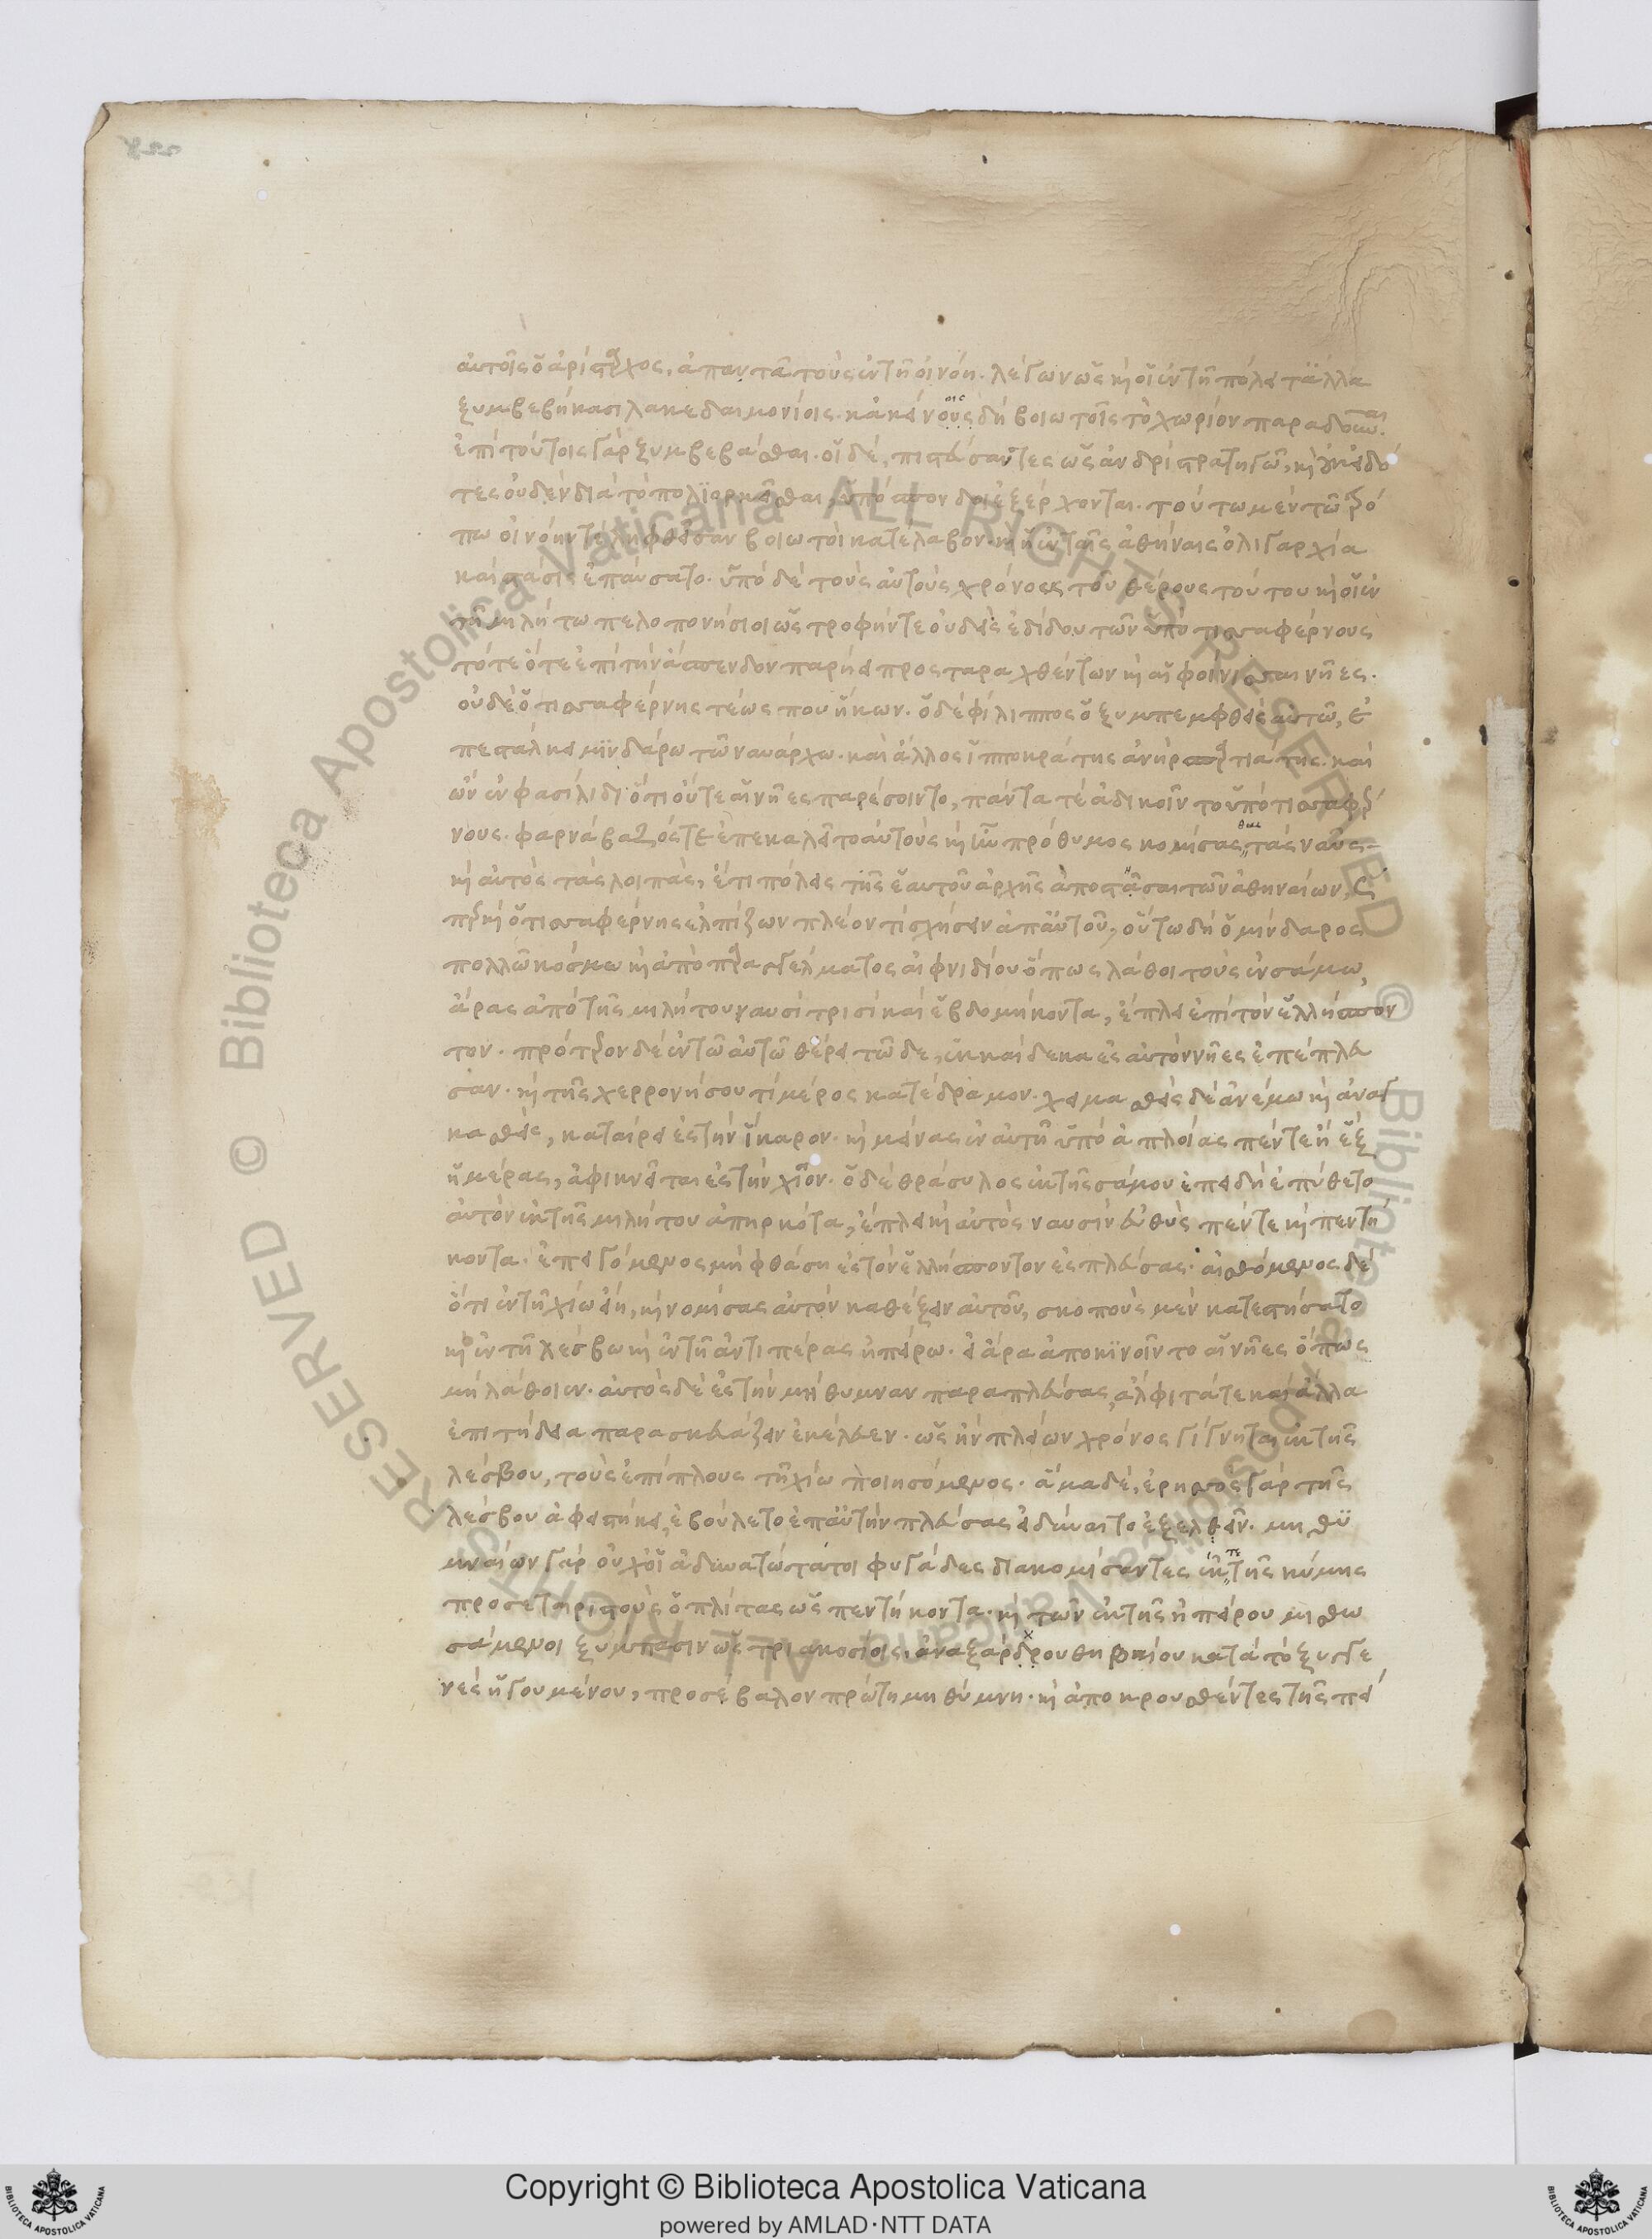 αὐτοῖς ὁ ἀρίσταρχος, ἀπαντᾶ τοὺς ἐν τῆ οἰνόη. λέγων ὡς καὶ οἱ ἐν τῆ πόλει τἄλλα
ξυμβεβήκασι λακεδαιμονίοις. κἀκείνους δεῖ βοιωτοῖς τὸ χωρίον παραδοῦναι.
ἐπὶ τούτοις γὰρ ξυμβεβάσθαι. οἱ δὲ, πιστεύσαντες ὡς ἀνδρὶ στρατηγῶ, καὶ εἰδό
τες οὐδὲν διὰ τὸ πολιορκεῖσθαι, ὑπόσπονδοι ἐξέρχονται. τούτω μὲν τῶ τρό
πω οἰνόην τε ληφθεῖσαν βοιωτοὶ κατέλαβον. καὶ ἡ ἐν ταῖς ἀθήναις ὀλιγαρχία
καὶ στάσις ἐπαύσατο. ὑπὸ δὲ τοὺς αὐτοὺς χρόνους τοῦ θέρους τούτου καὶ οἱ ἐν
τῆ μιλήτω πελοπονήσιοι ὡς τροφήν τε οὐδεὶς ἐδίδου τῶν ὑπὸ τισσαφέρνους
τότε ὅτε ἐπὶ τὴν ἄσπενδον παρήει προσταραχθέντων καὶ αἱ φοίνισσαι νῆες.
οὐδὲ ὁ τισσαφέρνης τέως που ἥκων. ὁ δὲ φίλιππος ὁ ξυμπεμφθεὶς αὐτῶ, ἐ
πεστάλκει μινδάρω τῶ ναυάρχω. καὶ ἄλλος ἱπποκράτης ἀνὴρ σπαρτιάτης. καὶ
ὢν ἐν φασίλιδι ὅτι οὔτε αἱ νῆες παρέσοιντο, πάντα τε ἀδικοῖντο ὑπὸ τισσαφέρ
νους. φαρνάβαζός τε ἐπεκαλεῖτο αὐτοὺς καὶ ἦν πρόθυμος κομίσας τὰς ναῦς
καὶ αὐτὸς τὰς λοιπὰς, ἔτι πόλεις τῆς ἑαυτοῦ ἀρχῆς ἀποστῆσαι τῶν ἀθηναίων, ὥσ
περ καὶ ὁ τισσαφέρνης ἐλπίζων πλέον τι σχήσειν ἀπ' αὐτοῦ, οὕτω δὴ ὁ μίνδαρος
πολλῶ κόσμω καὶ ἀπὸ παραγγέλματος αἰφνιδίου ὅπως λάθοι τοὺς ἐν σάμω,
ἄρας ἀπὸ τῆς μιλήτου ναυσὶ τρισὶ καὶ ἑβδομήκοντα, ἔπλει ἐπὶ τὸν ἑλλήσπον
τον. πρότερον δὲ ἐν τῶ αὐτῶ θέρει τῶδε, ἑκκαίδεκα ἐς αὐτὸν νῆες ἐπέπλευ
σαν. καὶ τῆς χερρονήσου τι μέρος κατέδραμον. χειμασθεὶς δὲ ἀνέμω καὶ ἀναγ
κασθεὶς, καταίρει ἐς τὴν ἴκαρον. καὶ μείνας ἐν αὐτῆ ὑπὸ ἀπλοίας πέντε ἢ ἓξ
ἡμέρας, ἀφικνεῖται ἐς τὴν χῖον. ὁ δὲ θράσυλος ἐκ τῆς σάμου ἐπειδὴ ἐπύθετο
αὐτὸν ἐκ τῆς μιλήτου ἀπηρκότα, ἔπλει καὶ αὐτὸς ναυσὶν εὐθὺς πέντε καὶ πεντή
κοντα. ἐπειγόμενος μὴ φθάση ἐς τὸν ἑλλήσποντον ἐσπλεύσας. αἰσθόμενος δὲ
ὅτι ἐν τῆ χίω εἴη, καὶ νομίσας αὐτὸν καθέξειν αὐτοῦ, σκοποὺς μὲν κατεστήσατο
καὶ ἐν τῆ λέσβω καὶ ἐν τῆ ἀντιπέρας ἠπείρω. εἰ ἄρα ἀποκινοῖντο αἱ νῆες ὅπως
μὴ λάθοιεν. αὐτὸς δὲ ἐς τὴν μήθυμναν παραπλεύσας, ἄλφιτά τε καὶ ἄλλα
ἐπιτήδεια παρασκευάζειν ἐκέλευεν. ὡς ἢν πλείων χρόνος γίγνηται ἐκ τῆς
λέσβου, τοὺς ἐπίπλους τῆ χίω ποιησόμενος. ἅμα δὲ, ἔρησος γὰρ τῆς
λέσβου ἀφειστήκει, ἐβούλετο ἐπ' αὐτὴν πλεύσας εἰ δύναιτο ἐξελθεῖν. μηθυ
μναίων γὰρ οὐχ οἱ ἀδυνατώτατοι φυγάδες διακομίσαντες ἔκ τε τῆς κύμης
προσεταιριστοὺς ὁπλίτας ὡς πεντήκοντα. καὶ τῶν ἐκ τῆς ἠπείρου μισθω
σάμενοι ξύμπασιν ὡς τριακοσίοις, ἀναξάρδρου θηβαίου κατὰ τὸ ξυγγε
νὲς ἡγουμένου, προσέβαλον πρώτη μηθύμνη. καὶ ἀποκρουσθέντες τῆς πεί
Copyright © Biblioteca Apostolica Vaticana
powered by AMLAD·NTT DATA